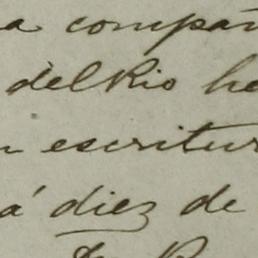 a compañ
del Rio he
n escritur
á diez de